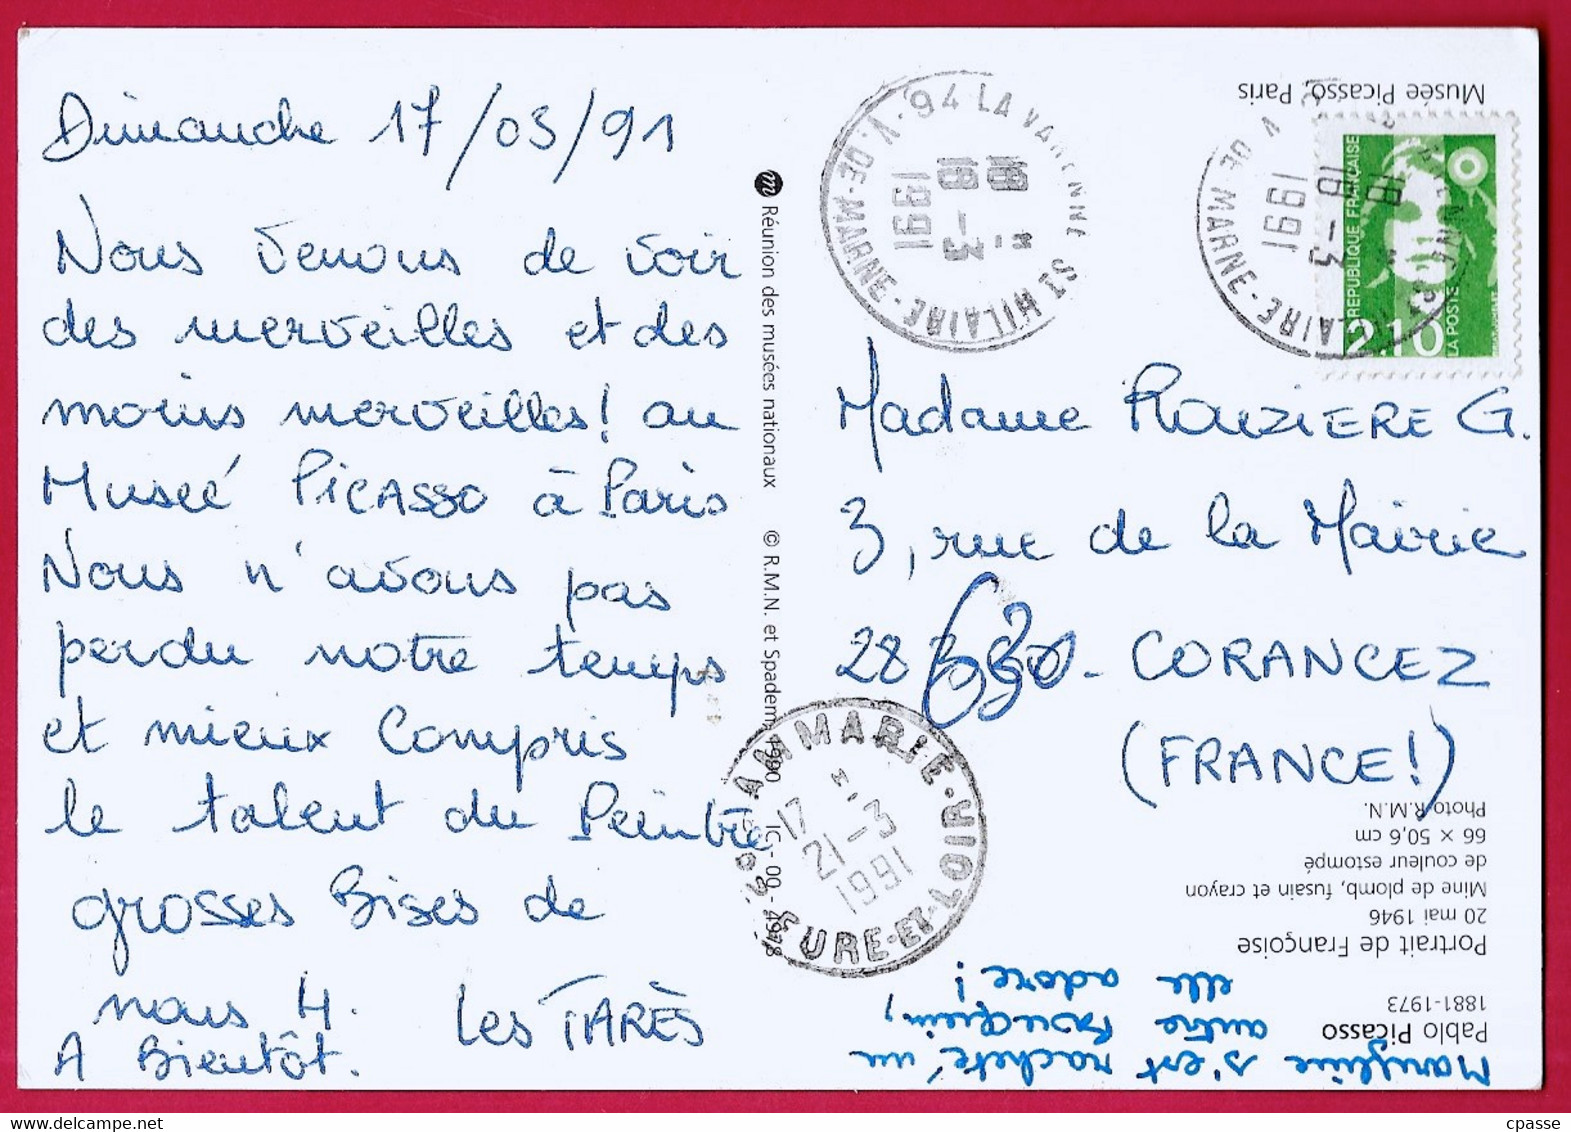 Dimanche 17/03/91
Nous venons de voir
des merveilles et des
moins merveilles! au
Musée PICASSO à Paris
Nous n'avons pas
perdu notre temps
et mieux compris
le talent du Peintre
grosses Bises de
nous 4. Les TARÈS
A Bientôt.
Réunion des musées nationaux © R.M.N. et Spadem, 1990 IC - 00 - 4978
V. 94 LA VARENNE ST HILAIRE
V. DE-MARNE
18 H
18 -3
1991
RÉPUBLIQUE FRANÇAISE
2,10
LA POSTE
18 H
18 -3
1991
DE MARNE
Madame ROUZIERE G.
3, rue de la Mairie
28 630 - CORANCEZ
(FRANCE!)
DAMMARIE
EURE-ET-LOIR
17 H
21-3
1991
Musée Picasso, Paris
Pablo Picasso
1881-1973
Portrait de Françoise
20 mai 1946
Mine de plomb, fusain et crayon
de couleur estompé
66 × 50,6 cm
Photo R.M.N.
s'est racheté un
autre bouquin,
elle adore!
cpasse